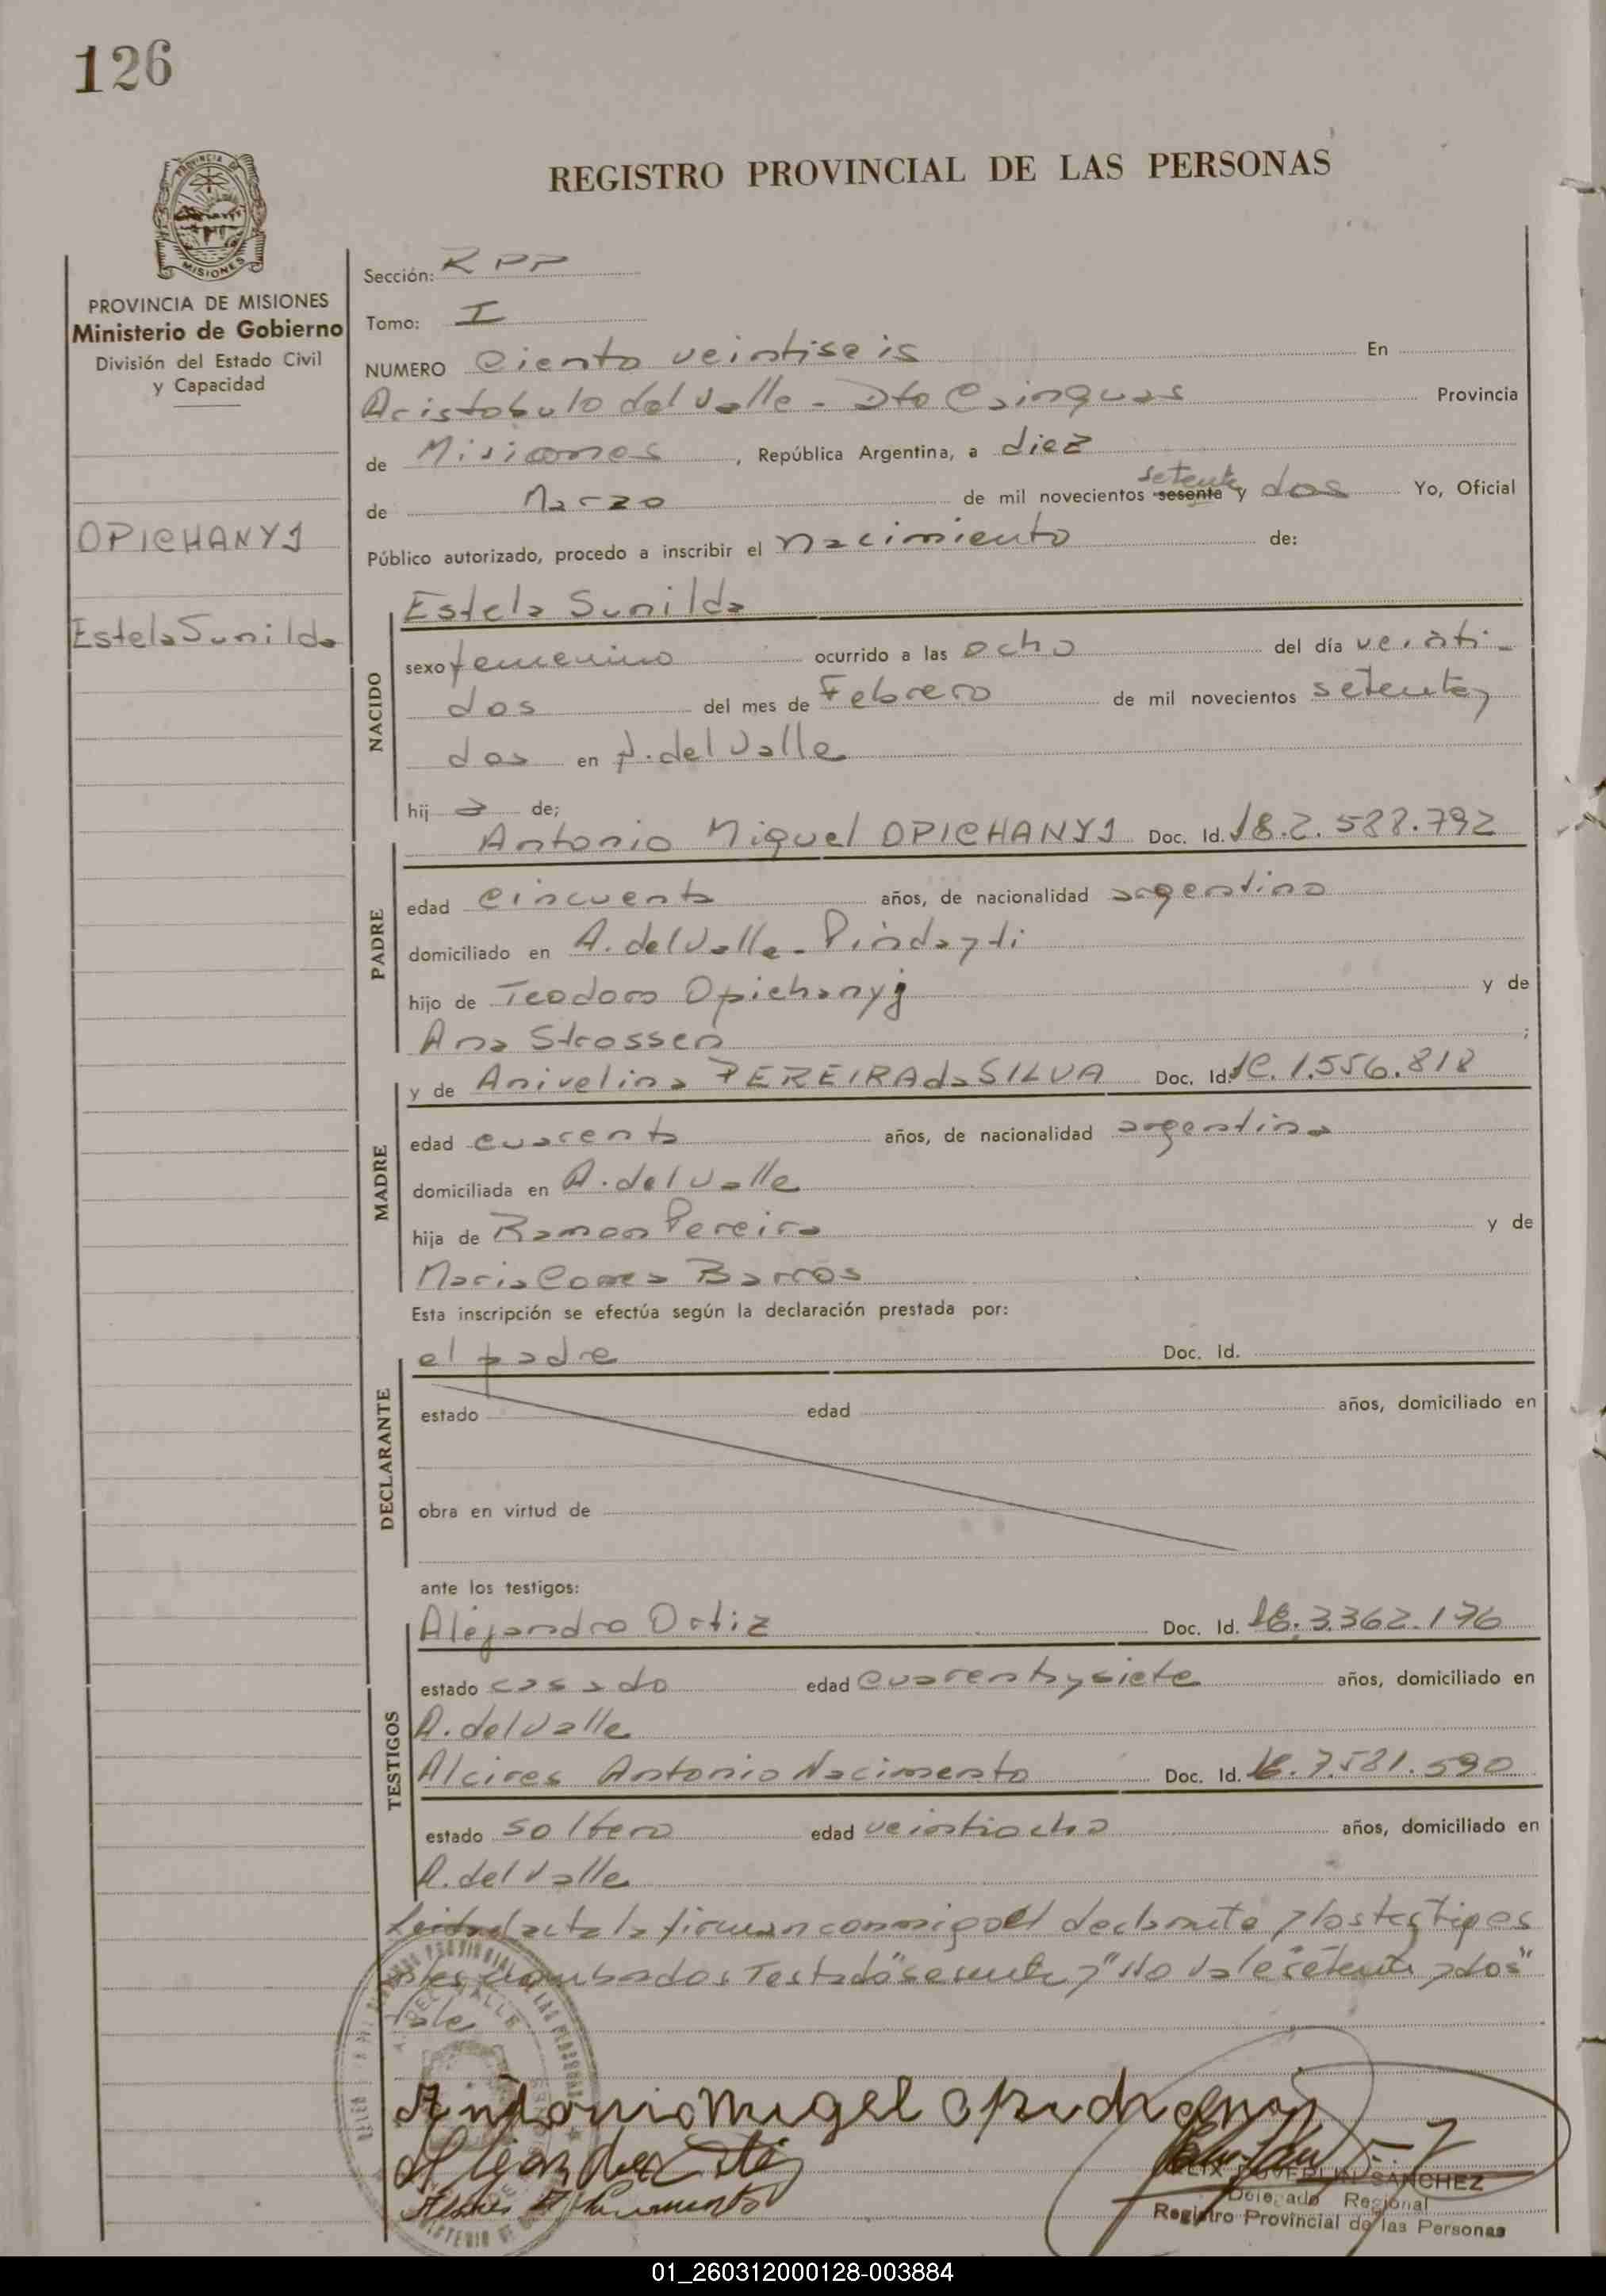 126
REGISTRO PROVINCIAL DE LAS PERSONAS
MISIONES
PROVINCIA DE MISIONES
Ministerio de Gobierno
División del Estado Civil
y Capacidad
OPICHANYJ
Estela Sunilda
Sección: RPP
Tomo: I
NUMERO Ciento veintiseis En
Aristobulo del Valle - Dto Cainguas Provincia
de Misiones, República Argentina, a diez
de Marzo de mil novecientos sesenta setenta y dos Yo, Oficial
Público autorizado, procedo a inscribir el nacimiento de:
NACIDO
Estela Sunilda
sexo femenino ocurrido a las ocho del día veinti-
dos del mes de Febrero de mil novecientos setenta y
dos en A. del Valle
hija de;
PADRE
Antonio Miguel OPICHANYJ Doc. Id. 2.588.792
edad cincuenta años, de nacionalidad argentino
domiciliado en A. del Valle - Pindayti
hijo de Teodoro Opichanyj y de
Ana Strossen ;
MADRE
y de Anivelina PEREIRA da SILVA Doc. Id. 1.556.818
edad cuarenta años, de nacionalidad argentina
domiciliada en A. del Valle
hija de Ramon Pereira y de
Maria Comea Barros
Esta inscripción se efectúa según la declaración prestada por:
DECLARANTE
el padre Doc. Id.
estado edad años, domiciliado en
obra en virtud de
ante los testigos:
TESTIGOS
Alejandro Ortiz Doc. Id. 3.362.176
estado casado edad cuarenta y siete años, domiciliado en
A. del Valle
Alcires Antonio Nacimento Doc. Id. 7.581.590
estado soltero edad veintiocho años, domiciliado en
A. del Valle
Leida el acta la firman conmigo el declarante y los testigos
antes nombrados Testado "sesenta y" No vale "setenta y dos"
Vale
Antonio Migel
SANCHEZ
Delegado Regional
Registro Provincial de las Personas
01_260312000128-003884